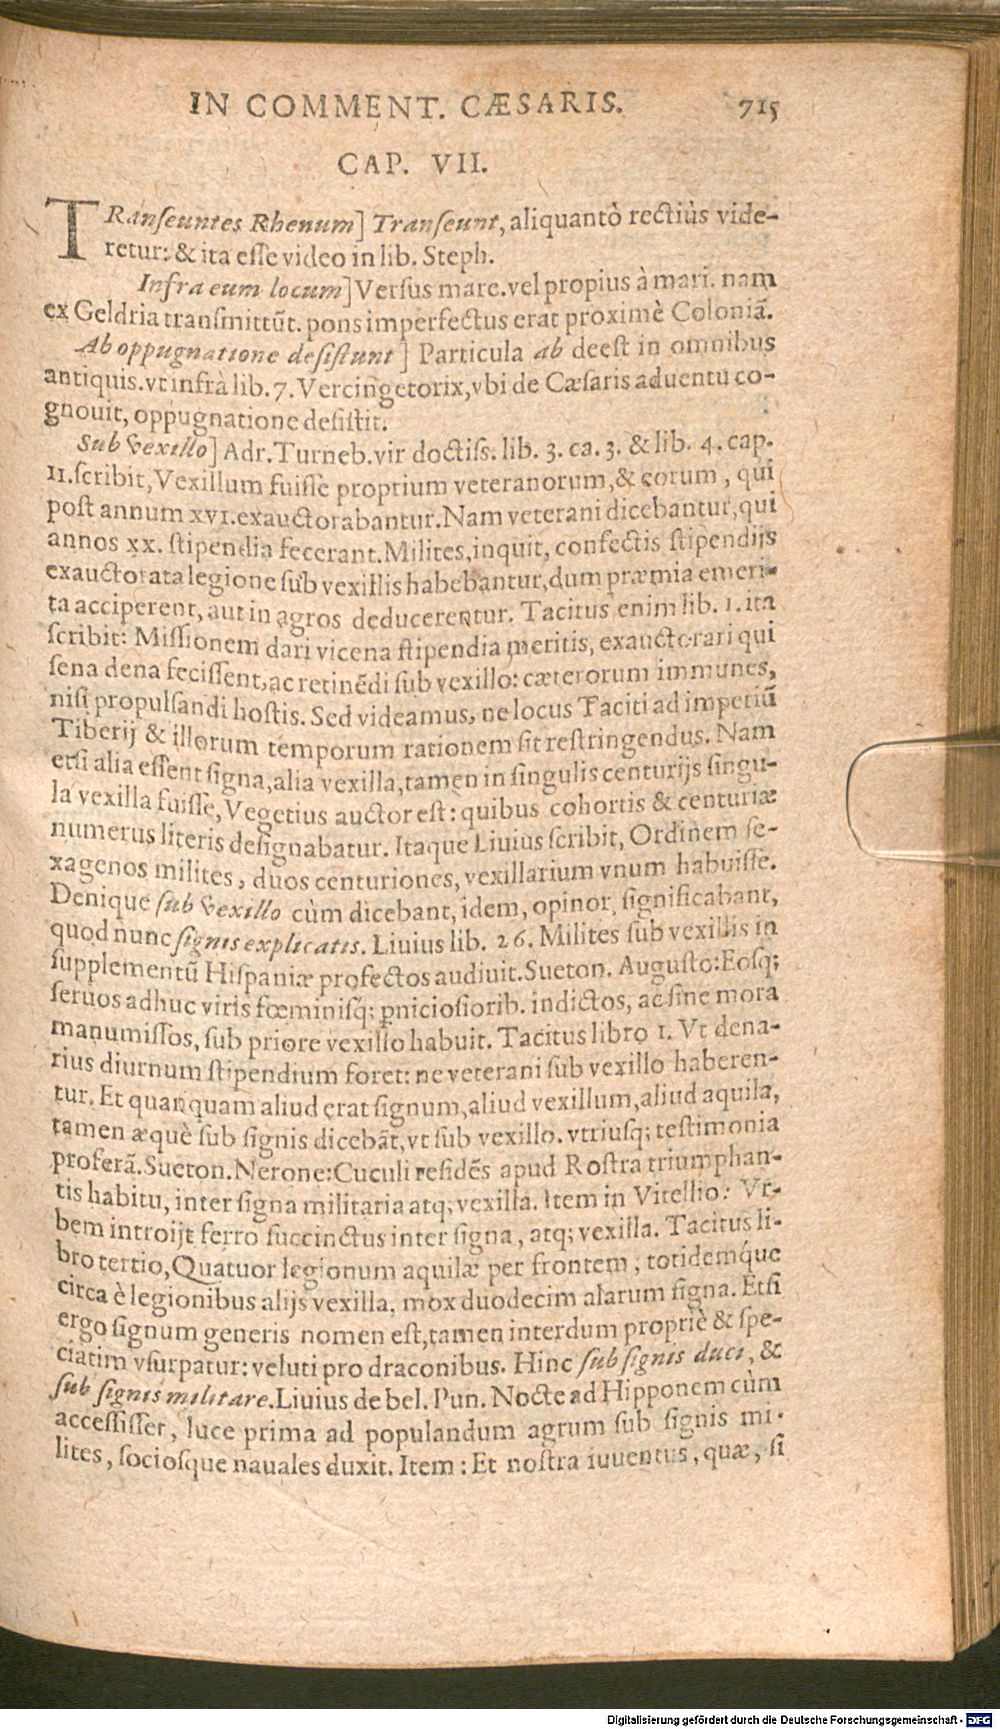 IN COMMENT. CÆSARIS. 715
CAP. VII.
TRanſeuntes Rhenum] Tranſeunt, aliquantò rectiùs vide-
retur: & ita eſſe video in lib. Steph.
Infra eum locum] Verſus mare. vel propius à mari. nam
ex Geldria tranſmittūt. pons imperfectus erat proximè Coloniā.
Ab oppugnatione deſiſtunt] Particula ab deeſt in omnibus
antiquis. vt infrà lib. 7. Vercingetorix, vbi de Cæſaris aduentu co-
gnouit, oppugnatione deſiſtit.
Sub vexillo] Adr. Turneb. vir doctiſs. lib. 3. ca. 3. & lib. 4. cap.
11. ſcribit, Vexillum fuiſſe proprium veteranorum, & eorum, qui
poſt annum xvi. exauctorabantur. Nam veterani dicebantur, qui
annos xx. ſtipendia fecerant. Milites, inquit, confectis ſtipendijs
exauctorata legione ſub vexillis habebantur, dum præmia emeri-
ta acciperent, aut in agros deducerentur. Tacitus enim lib. 1. ita
ſcribit: Miſſionem dari vicena ſtipendia meritis, exauctorari qui
ſena dena feciſſent, ac retinēdi ſub vexillo: cæterorum immunes,
niſi propulſandi hoſtis. Sed videamus, ne locus Taciti ad imperiū
Tiberij & illorum temporum rationem ſit reſtringendus. Nam
etſi alia eſſent ſigna, alia vexilla, tamen in ſingulis centurijs ſingu-
la vexilla fuiſſe, Vegetius auctor eſt: quibus cohortis & centuriæ
numerus literis deſignabatur. Itaque Liuius ſcribit, Ordinem ſe-
xagenos milites, duos centuriones, vexillarium vnum habuiſſe.
Denique ſub vexillo cùm dicebant, idem, opinor, ſignificabant,
quod nunc ſignis explicatis. Liuius lib. 26. Milites ſub vexillis in
ſupplementū Hiſpaniæ profectos audiuit. Sueton. Auguſto: Eoſq;
ſeruos adhuc viris fœminiſq; ꝑnicioſiorib. indictos, ac ſine mora
manumiſſos, ſub priore vexillo habuit. Tacitus libro 1. Vt dena-
rius diurnum ſtipendium foret: ne veterani ſub vexillo haberen-
tur. Et quanquam aliud erat ſignum, aliud vexillum, aliud aquila,
tamen æquè ſub ſignis dicebāt, vt ſub vexillo. vtriuſq; teſtimonia
proferā. Sueton. Nerone: Cuculi reſidēs apud Roſtra triumphan-
tis habitu, inter ſigna militaria atq; vexilla. Item in Vitellio: Vr-
bem introijt ferro ſuccinctus inter ſigna, atq; vexilla. Tacitus li-
bro tertio, Quatuor legionum aquilæ per frontem, totidemq́ue
circa è legionibus alijs vexilla, mox duodecim alarum ſigna. Etſi
ergo ſignum generis nomen eſt, tamen interdum propriè & ſpe-
ciatim vſurpatur: veluti pro draconibus. Hinc ſub ſignis duci, &
ſub ſignis militare. Liuius de bel. Pun. Nocte ad Hipponem cùm
acceſſiſſet, luce prima ad populandum agrum ſub ſignis mi-
lites, ſocioſque nauales duxit. Item: Et noſtra iuuentus, quæ, ſi
Digitalisierung gefördert durch die Deutsche Forschungsgemeinschaft - DFG